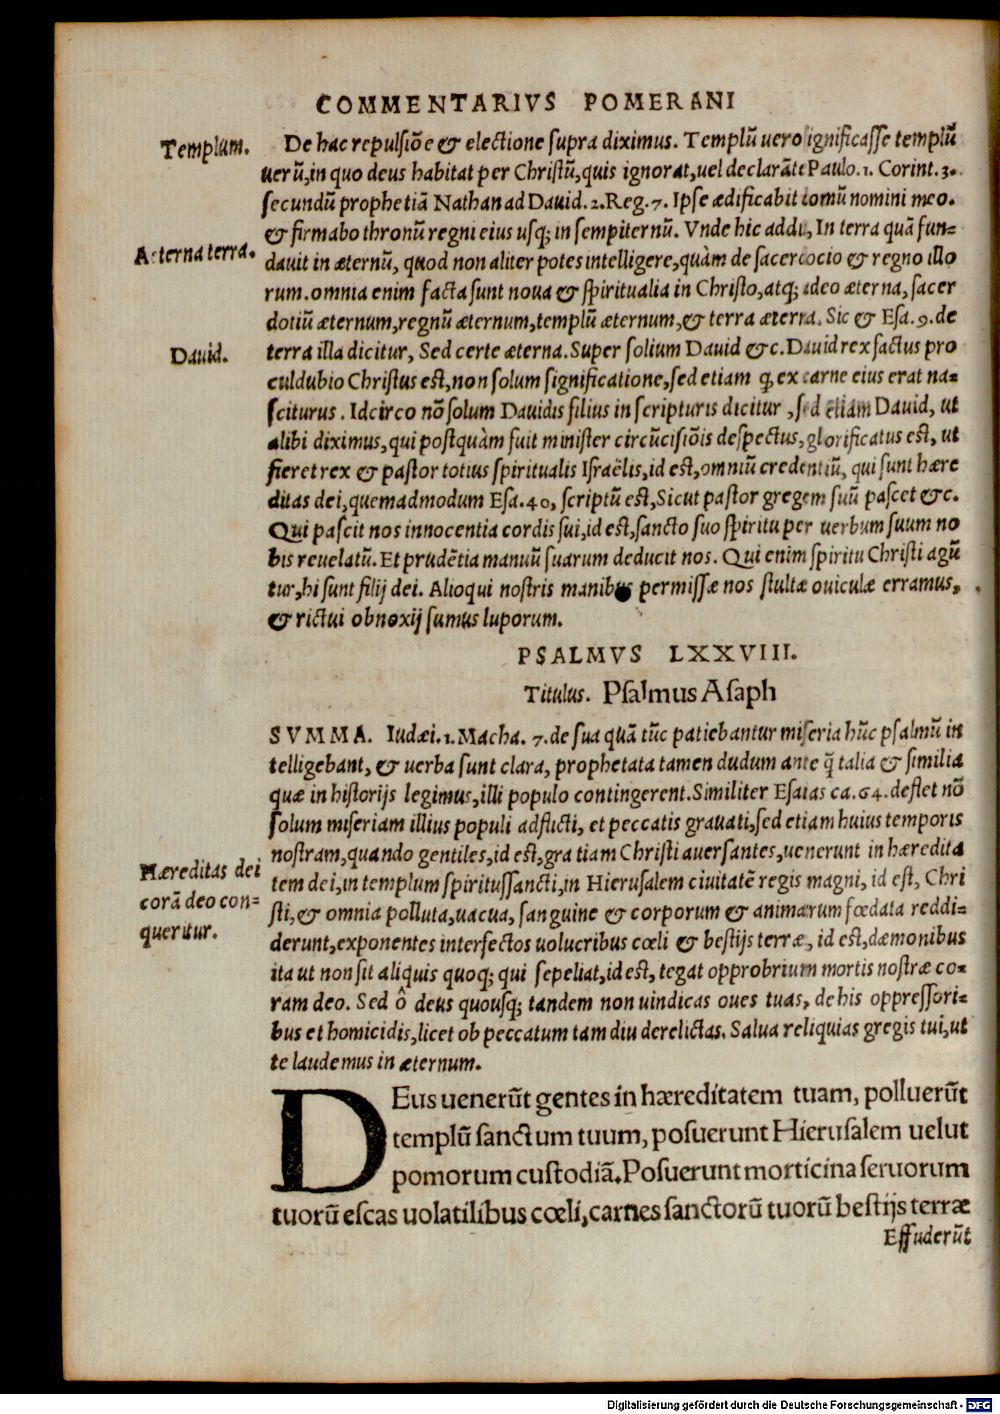 COMMENTARIVS POMERANI
Templum.
De hac repulsiõe & electione supra diximus. Templũ uero significasse templũ
uerũ, in quo deus habitat per Christũ, quis ignorat, uel declarãte Paulo. 1. Corint. 3.
secundũ prophetiã Nathan ad Dauid. 2. Reg. 7. Ipse ædificabit domũ nomini meo.
Aeterna terra.
& firmabo thronũ regni eius usq; in sempiternũ. Vnde hic addit, In terra quã fun=
dauit in æternũ, quod non aliter potes intelligere, quàm de sacerdocio & regno illo
rum. omnia enim facta sunt noua & spiritualia in Christo, atq; ideo æterna, sacer
dotiũ æternum, regnũ æternum, templũ æternum, & terra æterra. Sic & Esa. 9. de
Dauid.
terra illa dicitur, Sed certe æterna. Super solium Dauid &c. Dauid rex factus pro
culdubio Christus est, non solum significatione, sed etiam ꝗ ex carne eius erat na=
sciturus. Idcirco nõ solum Dauidis filius in scripturis dicitur, sed etiam Dauid, ut
alibi diximus, qui postquàm fuit minister circũcisiõis despectus, glorificatus est, ut
fieret rex & pastor totius spiritualis Israëlis, id est, omniũ credentiũ, qui sunt hære
ditas dei, quemadmodum Esa. 40, scriptũ est, Sicut pastor gregem suũ pascet &c.
Qui pascit nos innocentia cordis sui, id est, sancto suo spiritu per uerbum suum no
bis reuelatũ. Et prudẽtia manuũ suarum deducit nos. Qui enim spiritu Christi agũ
tur, hi sunt filij dei. Alioqui nostris manibus permissæ nos stultæ ouiculæ erramus,
& rictui obnoxij sumus luporum.
PSALMVS LXXVIII.
Titulus. Psalmus Asaph
SVMMA. Iudæi. 1. Macha. 7. de sua quã tũc patiebantur miseria hũc psalmũ in
telligebant, & uerba sunt clara, prophetata tamen dudum ante q̃ talia & similia
quæ in historijs legimus, illi populo contingerent. Similiter Esaias ca. 64. deflet nõ
solum miseriam illius populi adflicti, et peccatis grauati, sed etiam huius temporis
nostram, quando gentiles, id est, gratiam Christi auersantes, uenerunt in hæredita
Hæreditas dei
corã deo con=
queritur.
tem dei, in templum spiritussancti, in Hierusalem ciuitatẽ regis magni, id est, Chri
sti, & omnia polluta, uacua, sanguine & corporum & animarum fœdata reddi=
derunt, exponentes interfectos uolucribus cœli & bestijs terræ, id est, dæmonibus
ita ut non sit aliquis quoq; qui sepeliat, id est, tegat opprobrium mortis nostræ co=
ram deo. Sed ô deus quousq; tandem non uindicas oues tuas, de his oppressori=
bus et homicidis, licet ob peccatum tam diu derelictas. Salua reliquias gregis tui, ut
te laudemus in æternum.
DEus uenerũt gentes in hæreditatem tuam, polluerũt
templũ sanctum tuum, posuerunt Hierusalem uelut
pomorum custodiã. Posuerunt morticina seruorum
tuorũ escas uolatilibus cœli, carnes sanctorũ tuorũ bestijs terræ
Effuderũt
Digitalisierung gefördert durch die Deutsche Forschungsgemeinschaft - DFG